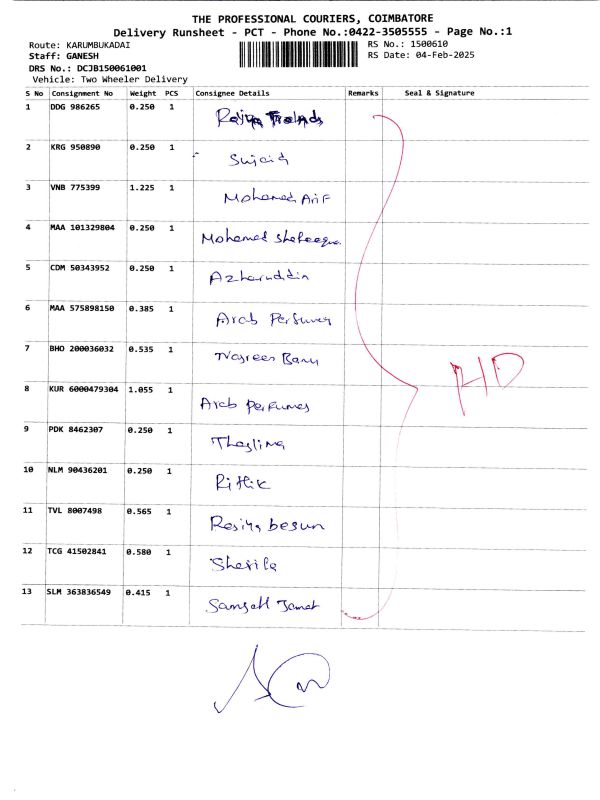 THE PROFESSIONAL COURIERS, COIMBATORE
Delivery Runsheet - PCT - Phone No.:0422-3505555 - Page No.:1
Route: KARUMBUKADAI RS No.: 1500610
Staff: GANESH RS Date: 04-Feb-2025
DRS No.: DCJB150061001
Vehicle: Two Wheeler Delivery
S No Consignment No Weight PCS Consignee Details Remarks Seal & Signature
1 DDG 986265 0.250 1
2 KRG 950890 0.250 1
3 VNB 775399 1.225 1 Mohamed Arif
4 MAA 101329804 0.250 1 Mohamed
5 CDM 50343952 0.250 1 Azharuddin
6 MAA 575898150 0.385 1 Arab Perfumes
7 BHO 200036032 0.535 1 Nasreen Banu
8 KUR 6000479304 1.055 1 Arab Perfumes
9 PDK 8462307 0.250 1 Thaslima
10 NLM 90436201 0.250 1 Rithik
11 TVL 8007498 0.565 1
12 TCG 41502841 0.580 1 Sherila
13 SLM 363836549 0.415 1
HD